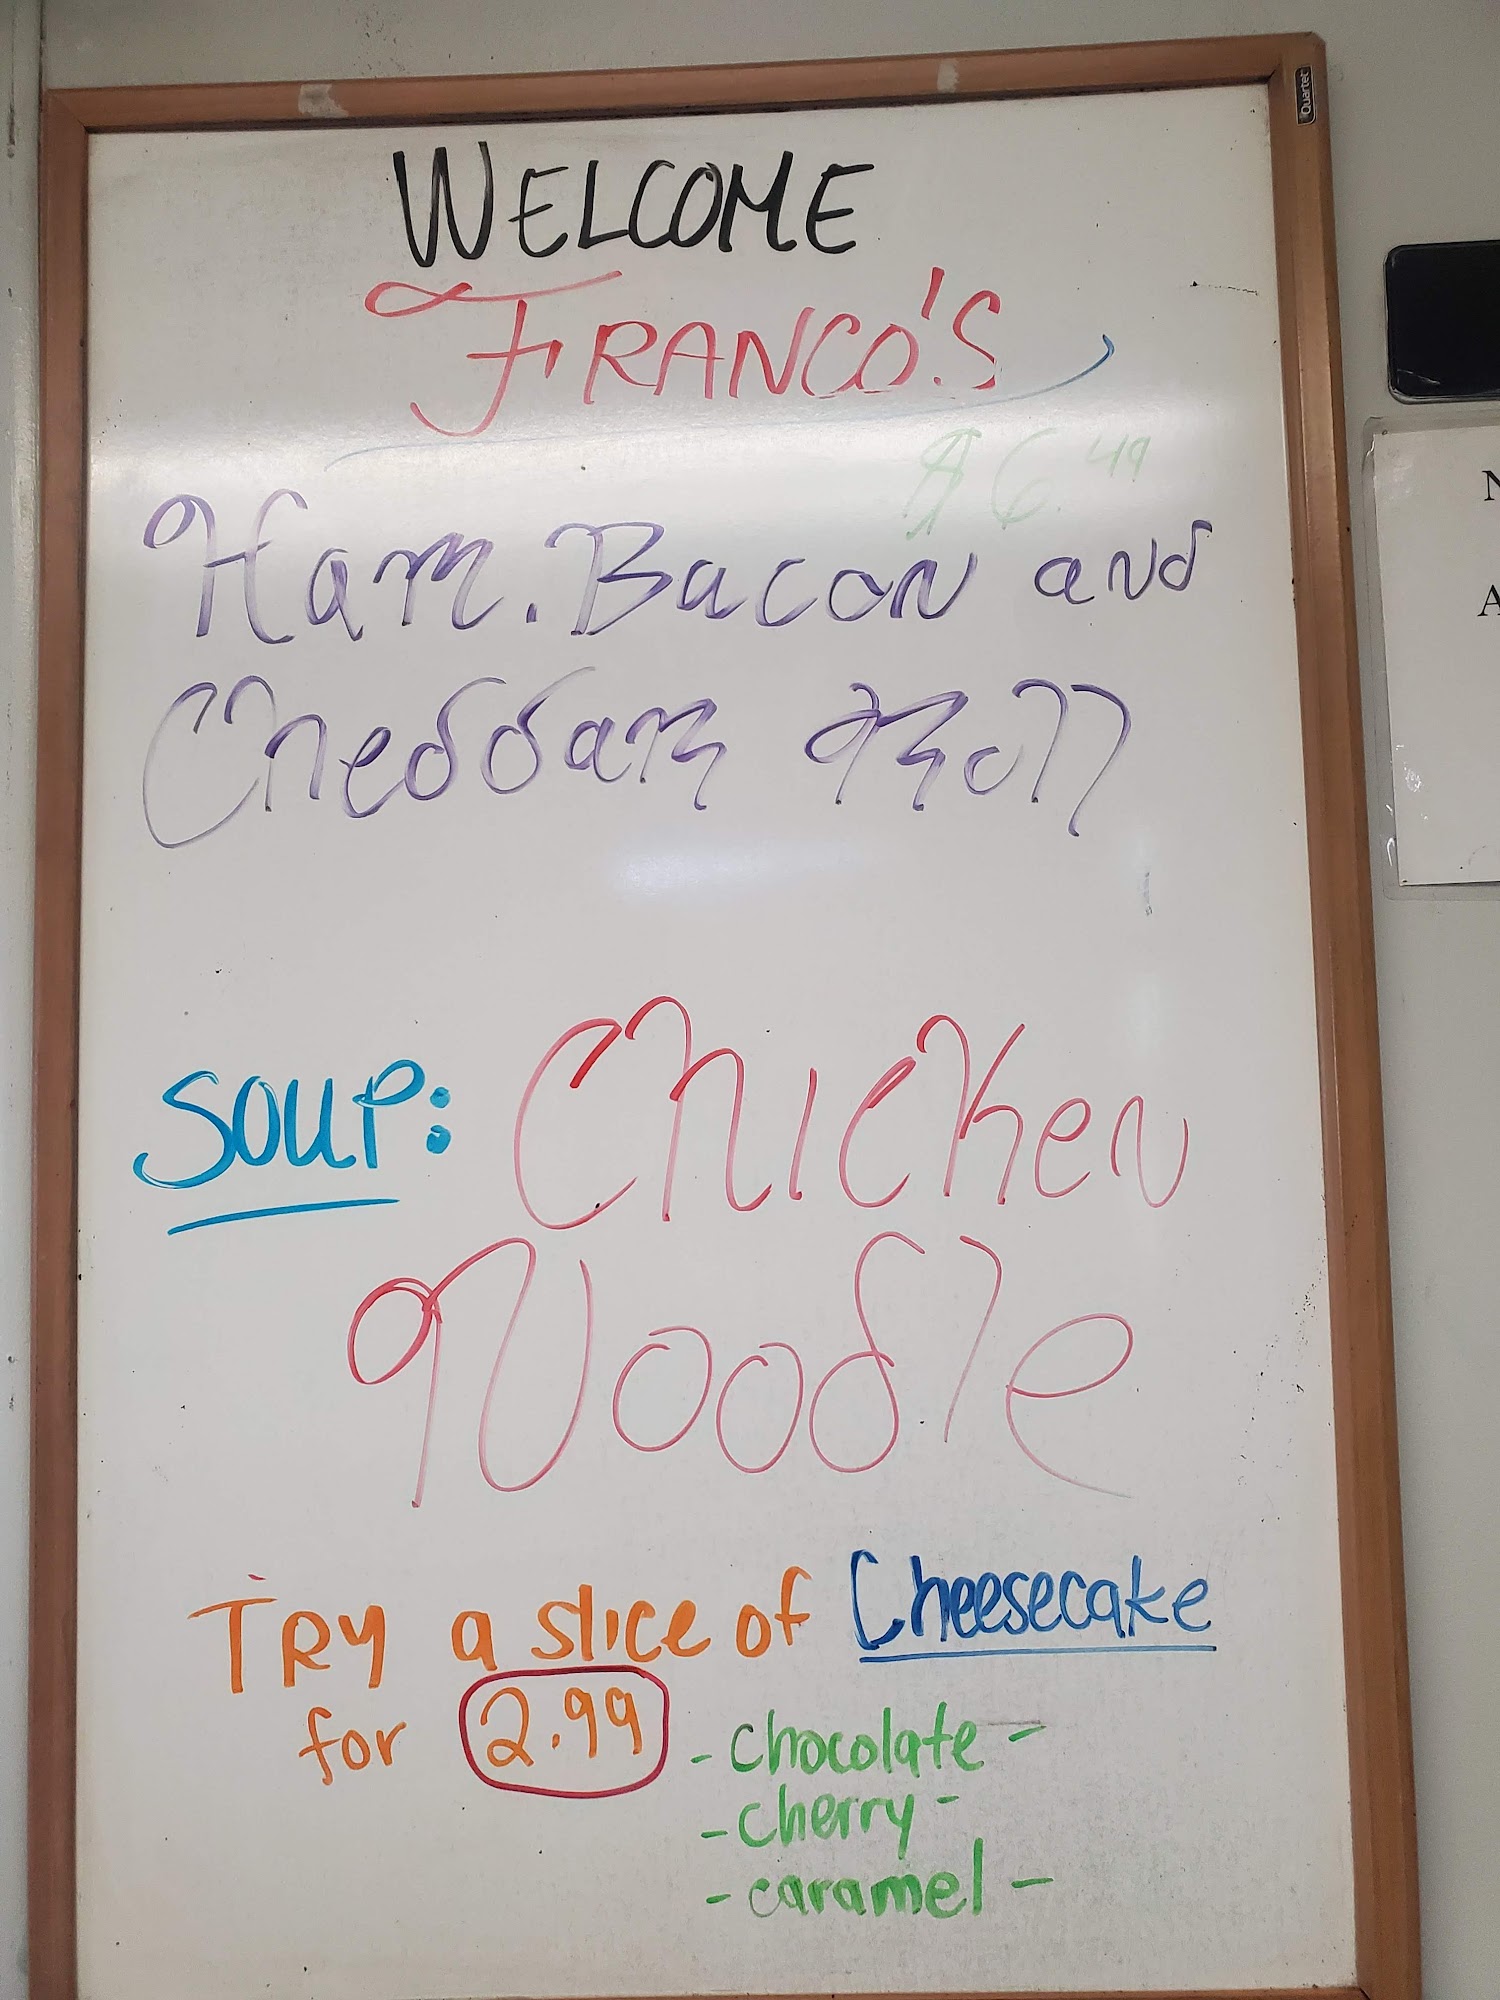 Quartet
WELCOME
FRANCO'S
$6.49
Ham. Bacon and
Cheddar Roll
SOUP: Chicken
Noodle
TRY a slice of Cheesecake
for 2.99
- chocolate -
- cherry -
- caramel -
N
A